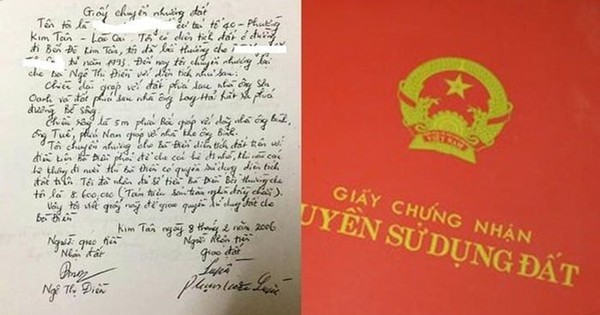 Giấy chuyển nhượng đất
Tên tôi là cư trú tổ 40 - Phường
Kim Tân - Lào Cai. Tôi có diện tích đất ở đường
đi Bến Đá Kim Tân, tôi đã bồi thường cho
từ năm 1993. Đến nay tôi chuyển nhượng lại
cho bà Ngô Thị Điền với diện tích như sau.
Chiều dài giáp với đất phía sau nhà ông
Oanh và đất phía sau nhà ông
đường Bê
Chiều rộng là 5m phía Bắc giáp với nhà ông
ông Tuế, phía Nam giáp với nhà ông Bình.
Tôi chuyển nhượng cho Bà Điền diện tích đất trên với
điều kiện Bà Điền phải để cho các hộ đi nhờ, khi nào các
hộ không đi nước thì Bà Điền có quyền sử dụng diện tích
đất trên. Tôi đã nhận đủ số tiền Bà Điền bồi thường cho
tôi là 8.600.000 (Tám triệu sáu trăm nghìn đồng chẵn).
Vậy tôi viết giấy này để giao quyền sử dụng đất cho
Bà Điền
Kim Tân ngày 8 tháng 2 năm 2006
Người giao tiền Người nhận tiền
Nhận đất Giao đất
Ngô Thị Điền
VIỆT NAM
GIẤY CHỨNG NHẬN
UYỀN SỬ DỤNG ĐẤT